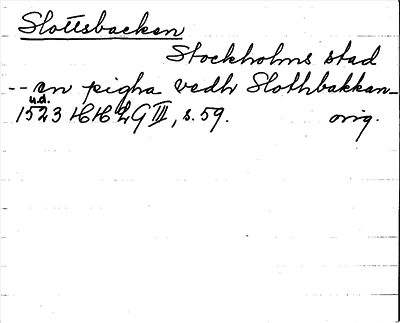 Slottsbacken
Stockholms stad
-- en pigha vedh Slothbakkan -
u.d.
1523 HH 2 G III, s. 59. orig.